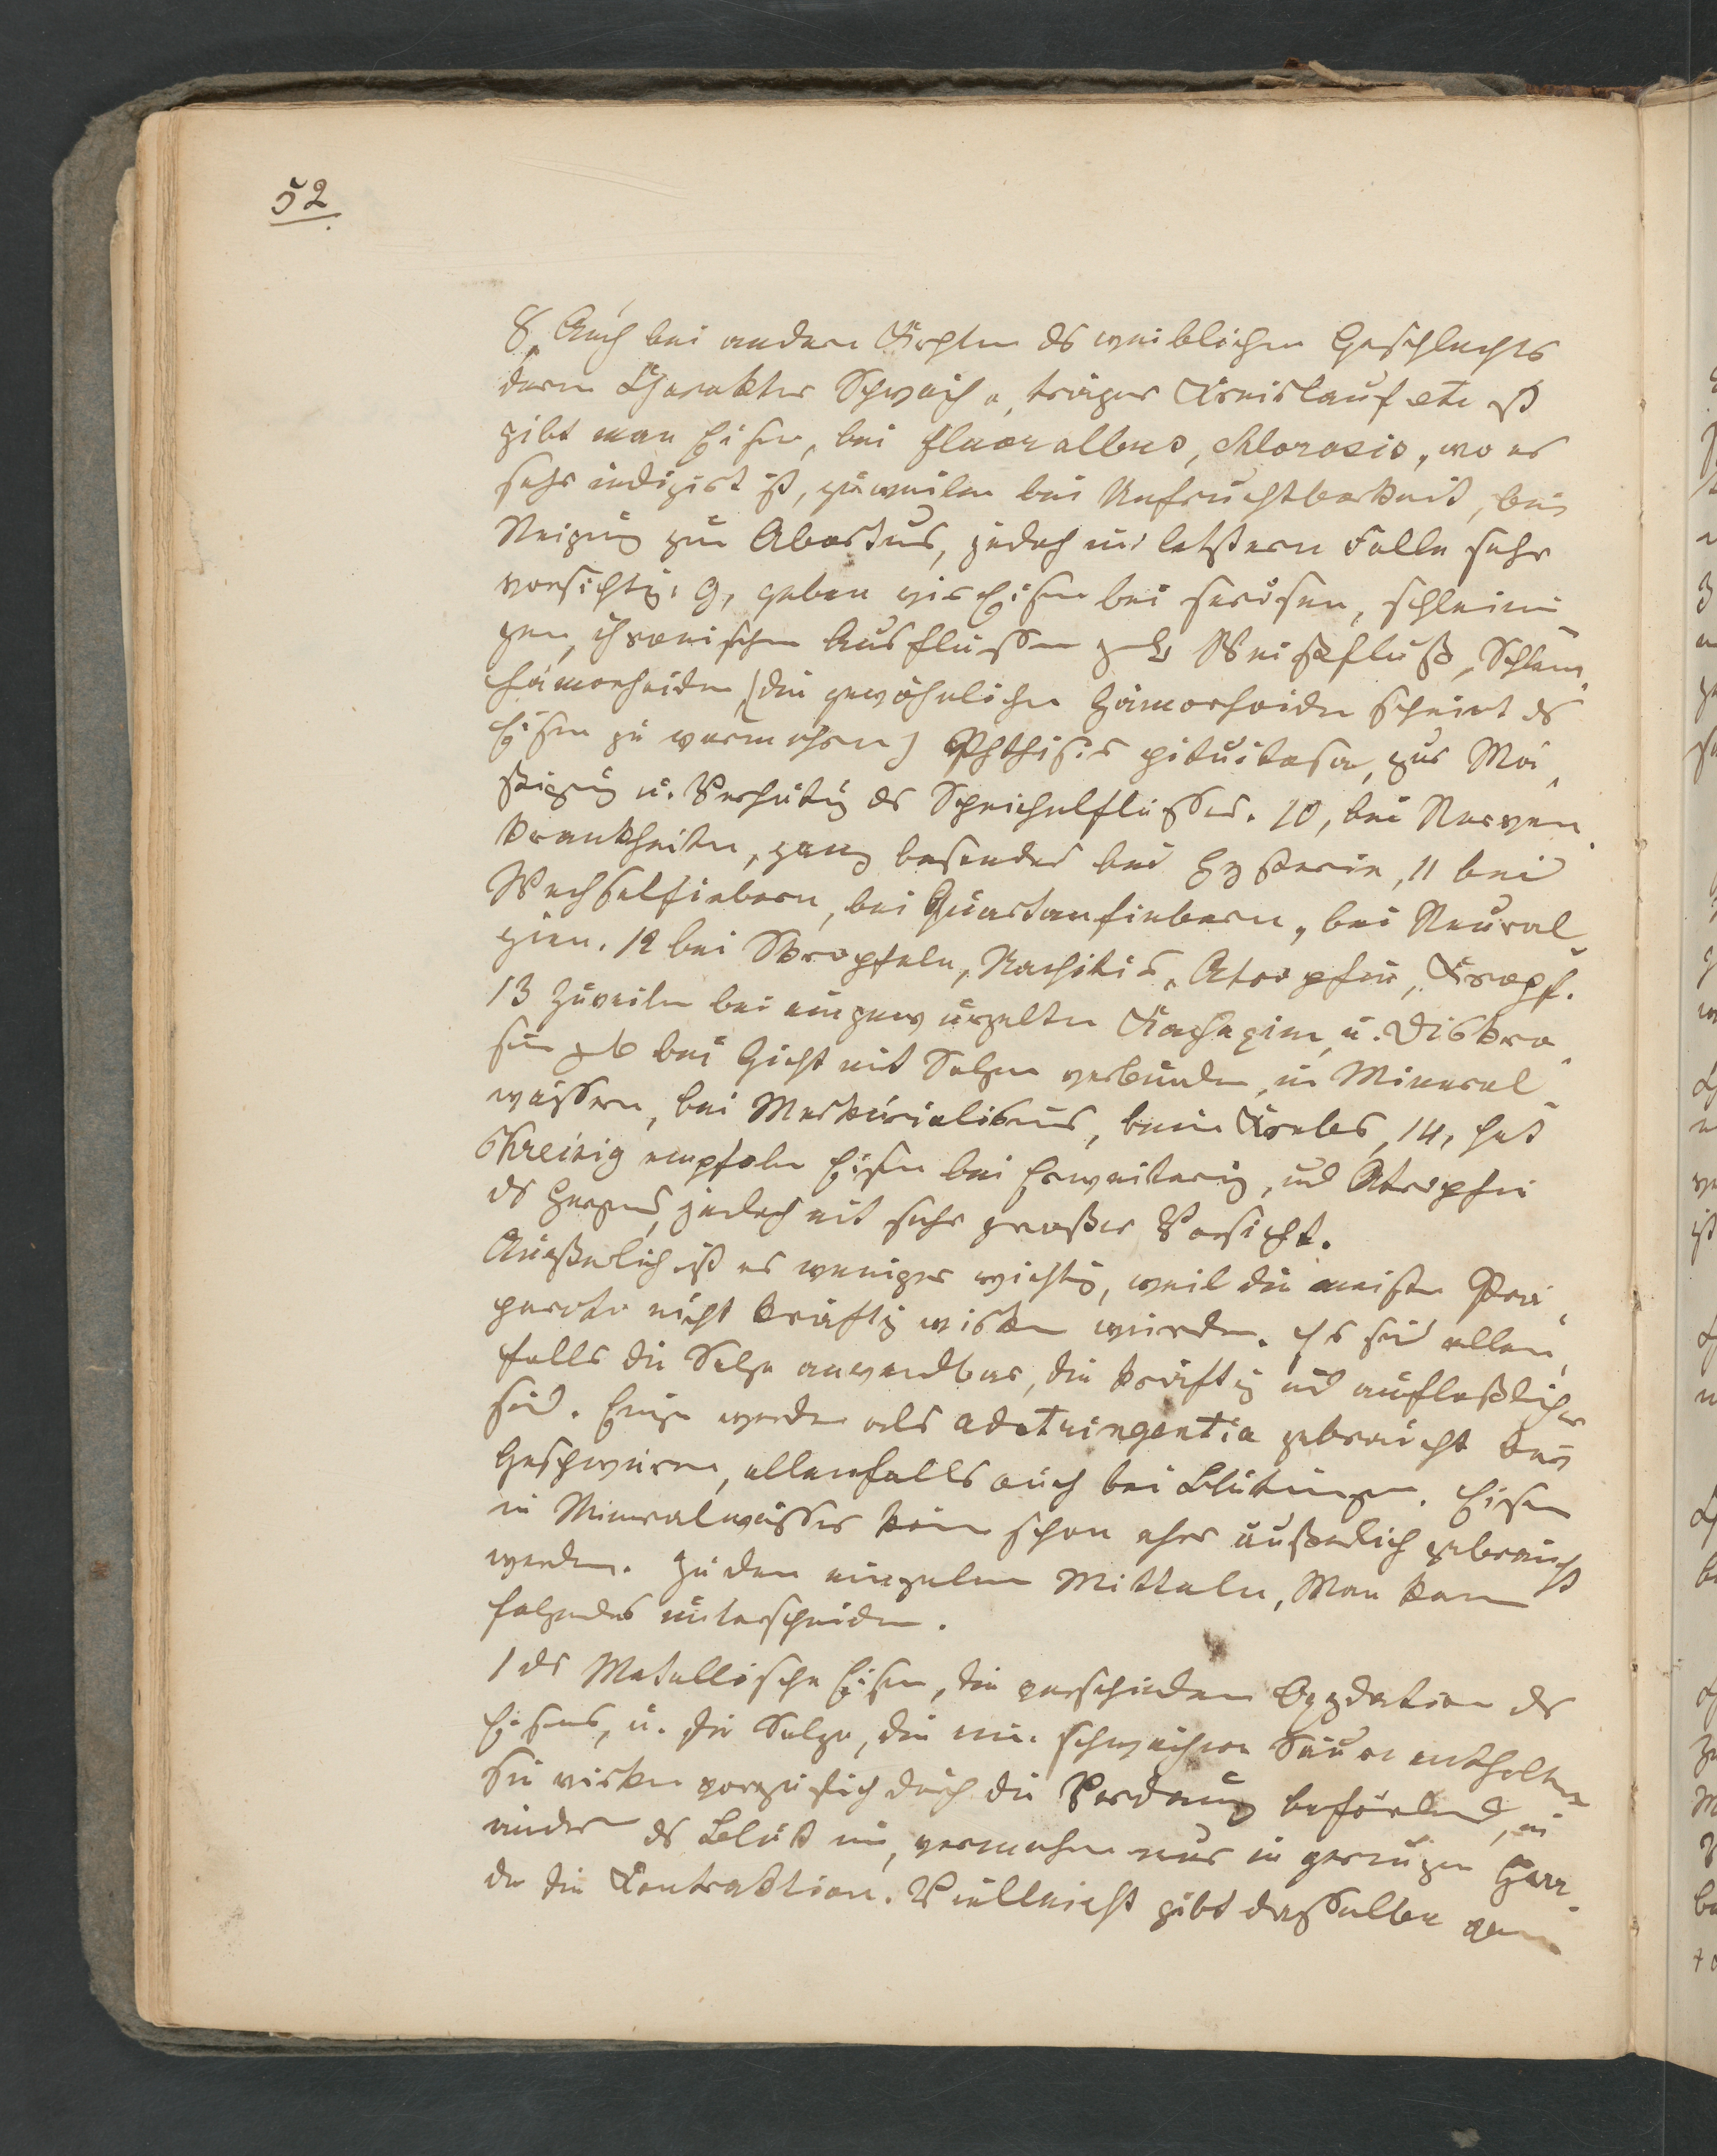 52
8, Auch bei andern Krkhten ds weiblichen Geschlechts
deren Charakter Schwäche, träger Kreislauf etc ist
gibt man Eisen, bei fluor albus, chlorosis, wo es
sehr indizirt ist, zuweilen bei Unfruchtbarkeit, bei
Neigung zum Abortus, jedoch im letztern Falle sehr
vorsichtig. 9, geben wir Eisen bei serösen, schleimi-
gen, chronischen Ausflüssen z.B. Weißfluß, Schleim-
hämorrhoiden, (die gewöhnlichen Hämorhoiden scheint ds
Eisen zu vermehren) Phthisis pituitosa, zur Mä-
ßigung u. Verhütung des Speichelflusses. 10, bei Nerven-
krankheiten, ganz besonders bei Hysterie, 11 bei
Wechselfiebern, bei Quartanfiebern, bei Neural-
gien. 12 bei Skropfeln, Rachitis, Atrophie, Kropf.
13 Zuweilen bei eingewurzelten Kachexien, u. Diskra-
sien zB bei Gicht mit Salzen verbunden, in Mineral-
wässern, bei Merkurialismus, beim Krebs, 14, hat
Kreisig empfohlen Eisen bei Erweiterung, und Atrophie
ds Herzens, jedoch mit sehr großer Vorsicht.
Äußerlich ist es weniger wichtig, weil die meisten Prä-
parate nicht kräftig wirken würden. Es sind allen-
falls die Salze anwendbar, die kräftig und auflößlicher
sind. Einige werden als adstringentia gebraucht bei
Geschwüren, allenfalls auch bei Blutungen. Eisen
in Mineralwässer kann schon eher äußerlich gebraucht
werden. Zu den einzelnen Mitteln, Man kann
folgendes unterscheiden.
1 ds Metallische Eisen, die verschiedenen Oxydation ds
Eisens, u. die Salze, die eine schwächere Säure enthalten
Sie wirken vorzüglich durch die Verdauung befördernd,
ändern ds Blut um, vermehren nur in geringem Gra-
de die Contraktion. Vielleicht gibt dasselbe